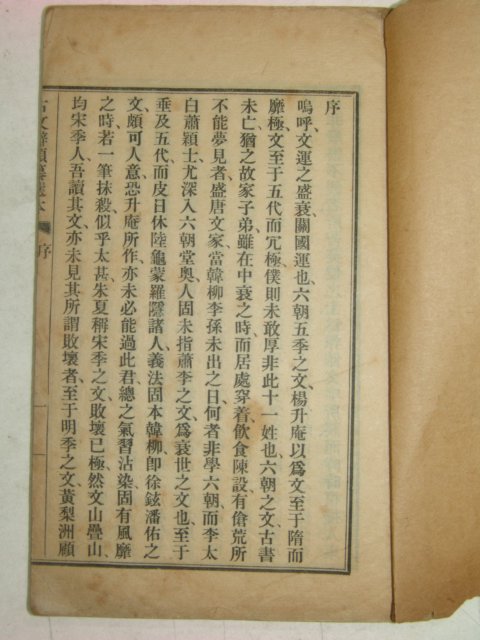 序
嗚呼、文運之盛衰、關國運也、六朝五季之文、楊升庵以爲文至于隋而
靡極、文至于五代而冗極、僕則未敢厚非此十一姓也、六朝之文、古書
未亡、猶之故家子弟、雖在中衰之時、而居處穿着飲食陳設、有傖荒所
不能夢見者、盛唐文家、當韓柳李孫未出之日、何者非學六朝、而李太
白蕭穎士、尤深入六朝堂奧、人固未指蕭李之文、爲衰世之文也、至于
垂及五代、而皮日休陸龜蒙羅隱諸人、義法固本韓柳、卽徐鉉潘佑之
文、頗可人意、恐升庵所作、亦未必能過此君、總之氣習沾染、固有風靡
之時、若一筆抹殺、似乎太甚、朱夏稱宋季之文、敗壞已極、然文山疊山、
均宋季人、吾讀其文、亦未見其所謂敗壞者、至于明季之文、黃梨洲顧
古文辭類纂選本 序